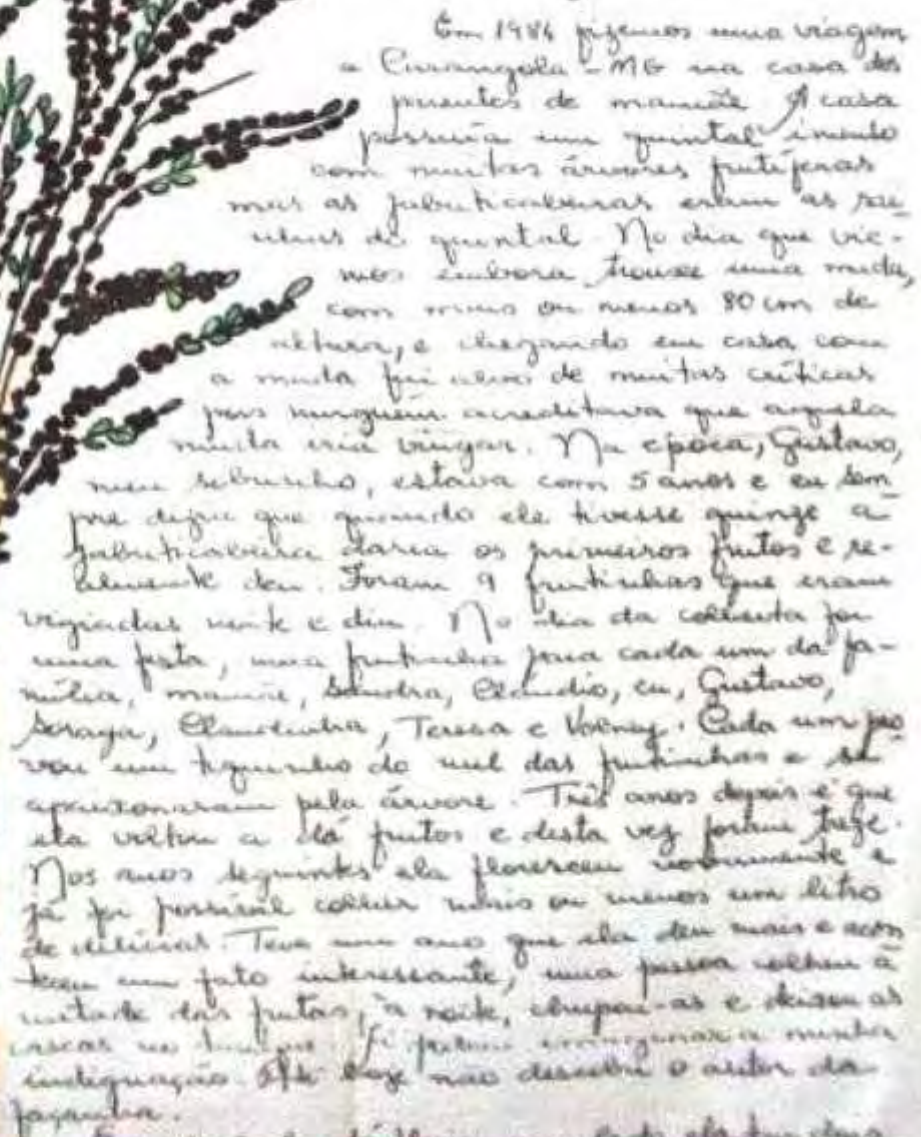 Em 1986 fizemos uma viagem
a Carangola - MG na casa dos
parentes de mamãe. A casa
possuía um quintal imenso
com muitas árvores frutíferas
mas as jabuticabeiras eram as rai
nhas do quintal. No dia que vie-
mos embora trouxe uma muda,
com mais ou menos 80 cm de
altura, e chegando em casa com
a muda fui alvo de muitas críticas
pois ninguém acreditava que aquela
muda iria vingar. Na época, Gustavo,
meu sobrinho, estava com 5 anos e eu sem
pre dizia que quando ele tivesse quinze a
jabuticabeira daria os primeiros frutos e re-
almente deu. Foram 9 frutinhas que eram
vigiadas noite e dia. No dia da colheita foi
uma festa, uma frutinha para cada um da fa-
mília, mamãe, Sandra, Cláudio, eu, Gustavo,
Soraya, Claudinha, Teresa e Volney. Cada um pro
vou um tiquinho do mel das frutinhas e se
apaixonaram pela árvore. Três anos depois é que
ela voltou a dá frutos e desta vez foram treze.
Nos anos seguintes ela floresceu novamente e
já foi possível colher mais ou menos um litro
de delícias. Teve um ano que ela deu mais e acon
teceu um fato interessante, uma pessoa colheu a
metade das frutas, à noite, chupou-as e deixou as
cascas no imaginar a minha
indignação. Até hoje não descobri o autor da
façanha.